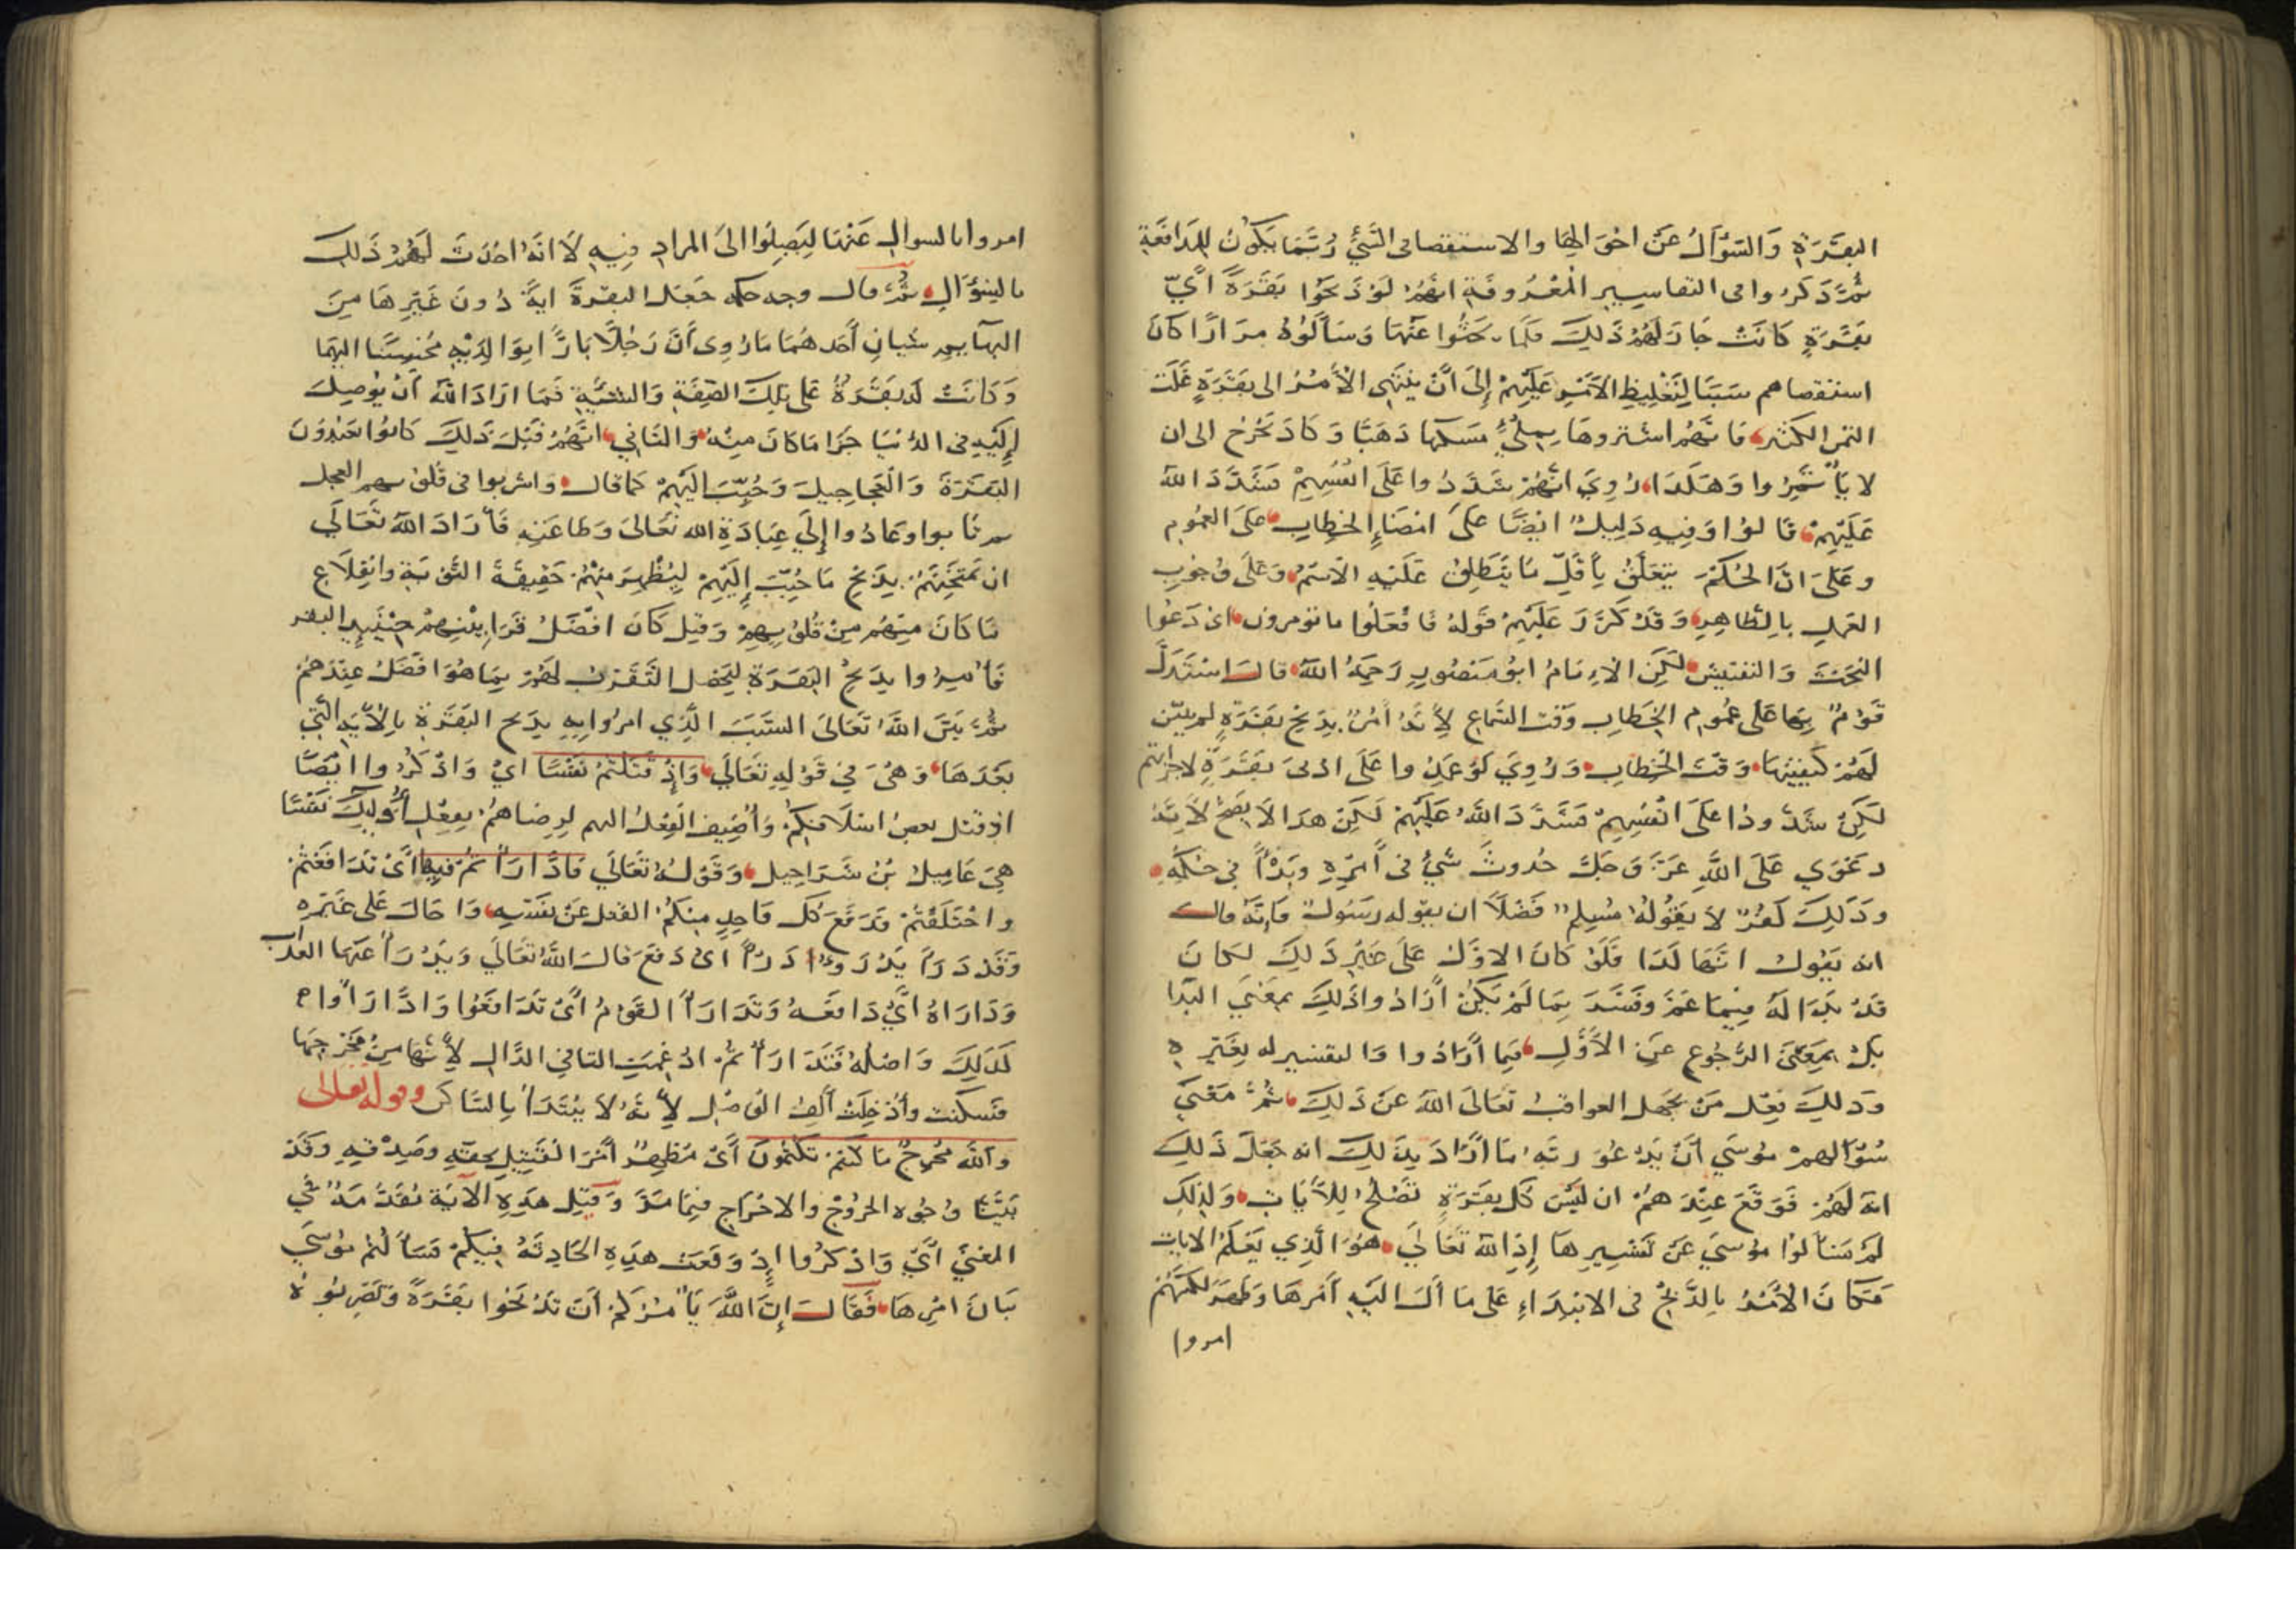 البَقَرَةِ وَالسُّؤَالُ عَنْ احْوَالِهَا والاستقصا فى الشَّيْءِ رُبَّمَا يَكُونُ لِلمَدَافَعَةِ
ثُمَّ ذَكَرُوا فى التفاسِيرِ الْمَعْرُوفَةِ انَهُمْ لَوْ ذَبَحُوا بَقَرَةً أَيَّ
بَقَرَةٍ كَانَتْ جَازَ لَهُمْ ذَلِكَ فَلَمَّا بَحَثُوا عَنْهَا وَسَأَلُوهُ مِرَارًا كَانَ
استقصاهم سَبَبًا لِتَغْلِيظِ الاَمْرِ عَلَيْهِمْ إِلَى أَنْ يَنْتَهِى الْأَمْرُ الى بَقَرَةٍ غَلَتْ
الثمن الكثير فَانَّهُمْ اشتروهَا بِمِلْءِ مَسْكِهَا ذَهَبًا وَكَادَ يَخْرُجُ الى ان
لا يَأْتَمِرُوا وَهَكَذَا رُوِيَ انَّهُمْ شَدَّدُوا عَلَى انْفُسِهِمْ فَشَدَّدَ اللهُ
عَلَيْهِمْ قَالُوا وَفِيهِ دَلِيلٌ ايْضًا عَلَى امْضَاءِ الخِطَابِ عَلَى العُمُومِ
وعَلَى انَّ الْحُكْمَ يَتَعَلَّقُ بِأَقَلِّ مَا يَنْطَلِقُ عَلَيْهِ الاسْمُ وَعَلَى وُجُوبِ
العَمَلِ بِالظَّاهِرِ وَقَدْ كَرَّرَ عَلَيْهِمْ قَوْلَهُ فَافْعَلُوا ما تومرون اى دَعُوا
البَحْثَ وَالتفتيش لَكِنِ الْاِمَامُ ابُو مَنْصُورٍ رَحِمَهُ اللهُ قالَ اسْتَدَلَّ
قَوْمٌ بِهَا عَلَى عُمُومِ الخِطَابِ وَقْت السَّمَاعِ لِأَنَّهُ أَمْرٌ بِذَبْحِ بَقَرَةٍ لم يبيّن
لَهُمْ كَيْفِيَّتَهَا وَقْتَ الْخِطَابِ وَرُوِيَ لَوْ عَمَدُوا عَلَى ادْنَى بَقَرَةٍ لاجزاتهم
لَكِنْ شَدَّدُوا عَلَى انْفُسِهِمْ فَشَدَّدَ اللهُ عَلَيْهِمْ لَكِنْ هَذَا لَا يَصِحُّ لِأَنَّهُ
دَعْوَي عَلَى اللهِ عَزَّ وَجَلَّ حُدوثَ شَيْءٍ فى أَمْرِهِ وَبَدْأً فِي حُكْمِهِ
وذَلِكَ كُفْرٌ لَا يَقُولُهُ مُسْلِمٌ فَضْلًا ان يقوله رَسُولٌ فَاِنَّهُ قالَ
انه يَقُولُ انَّهَا كَذَا فَلَوْ كَانَ الاوَّلُ عَلَى غَيْرِ ذَلِكَ لكانَ
قَدْ بَدَا لَهُ فِيمَا عَمَّ وَفَسَّرَ بِمَا لَمْ يَكُنْ أَرَادَ وَاذَلِكَ بِمَعْنَى البَدَا
بَلْ بِمَعْنَى الرُّجُوعِ عَنِ الْأَوَّلِ فِيمَا أَرَادُوا وَالتفسير له بِغَيْرِهِ
وذلِكَ فِعْل مَنْ يَجْهَل العواقبَ تَعَالَى اللهُ عَنْ ذَلِكَ ثُمَّ مَعْنَى
سُؤَالِهِمْ مُوسَى أَنْ يَدْعُوَ رَبَّهُ مَا أَرَادَ بِذَلِكَ انه جَعَلَ ذَلِكَ
ايَةً لَهُمْ فَوَقَعَ عِنْدَهُمْ ان لَيْسَ كُلُّ بَقَرَةٍ تَصْلُحُ لِلْأيَاتِ وَلِذَلِكَ
لَمْ سَأَلُوا مُوسَى عَنْ تَفْسِيرِهَا إِذِ اللهُ تَعَالَى هُوَ الَّذِي يَعْلَمُ الايات
فَكَانَ الْأَمْرُ بِالذَّبْحِ فى الابْتِدَاءِ عَلَى مَا أَلَ الَيْهِ أَمْرُهَا وَظَهَرَ لَكِنَّهُمْ
امروا
امروا بالسوالِ عَنْهَا لِيَصِلُوا الىَ المرادِ فِيهِ لَا انَّهُ احْدَثَ لَهُمْ ذَلِكَ
بالسُؤالِ ثُمَّ قال وجه حكمه جَعَلَ البقرةَ ايةً دُونَ غَيْرِهَا مِنَ
البهَايمِ شيان أَحَدهُمَا مَا رُوِى أَنَّ رَجُلًا بَارًّا بِوَالِدَيْهِ مُحْسِنًا اليهَما
وَكَانَتْ لَهُ بَقَرَةٌ عَلى تِلْكَ الصِّفَةِ وَالشِّيَةِ فَمَا ارَادَ اللهُ أَنْ يُوصِلَ
إِلَيْهِ فى الدُّنْيَا جَزَا مَا كَانَ مِنْهُ وَالثانِي انَّهُمْ قَبْلَ ذَلِكَ كَانُوا يَعْبُدُونَ
البَقَرَةَ وَالْعَجَاجِيلَ وَحُبِّبَ الَيْهِمْ كما قال واشربوا فى قُلُوبهم العجل
ثم تَابوا وعَادُوا إِلَى عِبَادَةِ الله تَعَالَى وَطَاعَتِهِ فَأَرَادَ اللهُ تَعَالَى
ان يَمْتَحِنَهُمْ بِذَبْحِ مَا حُبِّبَ إِلَيْهِمْ لِيُظْهِرَ مِنْهُمْ حَقِيقَةَ التَّوْبَةِ وانْقِلَاعِ
مَا كَانَ مِنْهُم مِنْ قُلُوبِهِمْ وَقيل كَانَ افْضَلُ قَرَابِينِهِمْ حِينَئِذٍ البقر
فَأُمِرُوا بِذَبْحِ البَقَرَةِ لِيَحصلَ التَّقَرُّبُ لَهُمْ بِمَا هُوَ افْضَلُ عِنْدَهُمْ
ثُمَّ بَيَّنَ اللهُ تَعَالَى السَّبَبَ الَّذِي امِرُوا بِهِ بِذبح البَقَرَةِ بِالْأيَةِ الَّتِي
بَعْدَهَا وَهِيَ فِي قَوْلِهِ تَعَالَي وَإِذْ قَتَلْتُمْ نَفْسًا ايْ وَاذْكُرُوا ايْضًا
اذ قتل بعضُ اسْلَافِكُمْ وَأُضِيفَ الْفِعْلُ اليهم لِرِضَاهُمْ بِفِعْلِ أُولَئِكَ نَفْسًا
هِيَ عَامِيلُ بْنُ شَرَاحِيل وَقَوْلُهُ تَعَالَي فَادَّارَأْتُمْ فيهَا أَىْ تَدَافَعْتُمْ
واخْتَلَفْتُمْ فَدَفَعَ كُلُّ وَاحِدٍ مِنْكُمْ القتل عَنْ نَفْسِهِ وَاحَالَ عَلى غَيْرِهِ
وَقَدْ دَرَأَ يَدْرَؤُا دَرْأً اىْ دَفَعَ قالَ اللهُ تَعَالَي وَيَدْرَأُ عَنْهَا العَذَابَ
وَدَارَاهُ أَيْ دَافَعَهُ وَتَدَارَأَ القَوْمُ أَىْ تَدَافَعُوا وَادَّارَأُوا
كَذَلِكَ وَاصْلُهُ فَتَدَارَأْتُمْ ادْغِمَتِ التا فِي الدَّالِ لِأَنَّهَا مِنْ مَخْرَجِهَا
فَسكنت وأُدْخِلَتْ أَلِفُ الوَصْلِ لِأَنَّهُ لَا يُبْتَدَأُ بِالسَّاكن وقوله تعالى
واللهُ مُخْرِجٌ مَا كُنْتُمْ تَكْتُمُونَ أَىْ مُظْهِرٌ أَمْرَ الْقَتِيلِ بِحَقِّهِ وصِدْقِهِ وَقَدْ
بَيَّنَّا وُجُوه الخُرُوجِ والاخْرَاجِ فِيمَا مَرَّ وَقيل هَذِهِ الآيَة مُقَدَّمَةٌ فِي
المعْنَيَ أَيْ وَاذْكُرُوا إِذْ وَقَعَتْ هَذِهِ الْحَادِثَةُ فِيكُمْ فَسَأَلْتُمْ مُوسَي
بَيَانَ امْرِهَا فَقَالَ إِنَّ اللهَ يَأْمُرُكُمْ أَنْ تَذْبَحُوا بَقَرَةً وَتَضْرِبُوهُ